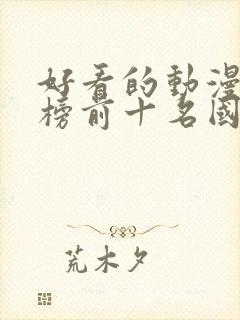 好看的動漫
榜前十名國
荒木夕